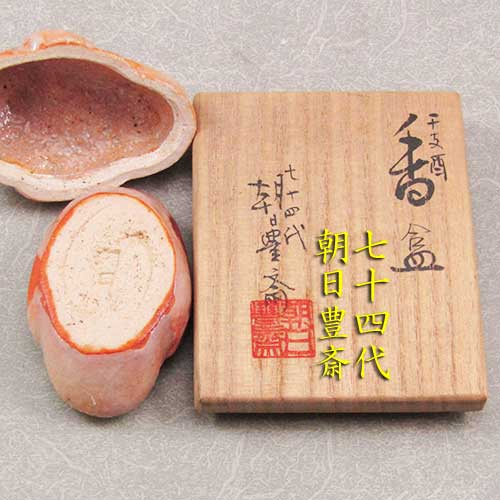 干支酉
香合
七十四代
朝日豊斎
七十四代
朝日豊斎
朝日
豊斎